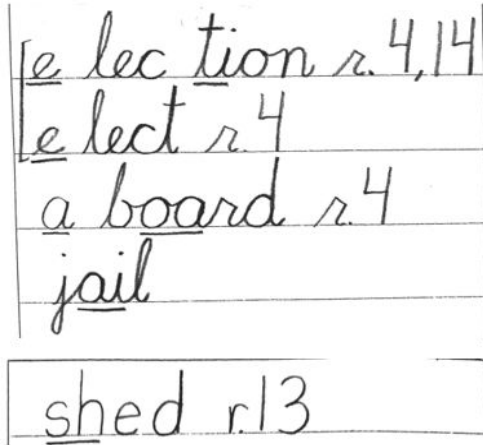 e lec tion r. 4, 14
e lect r. 4
a board r. 4
jail
shed r. 13